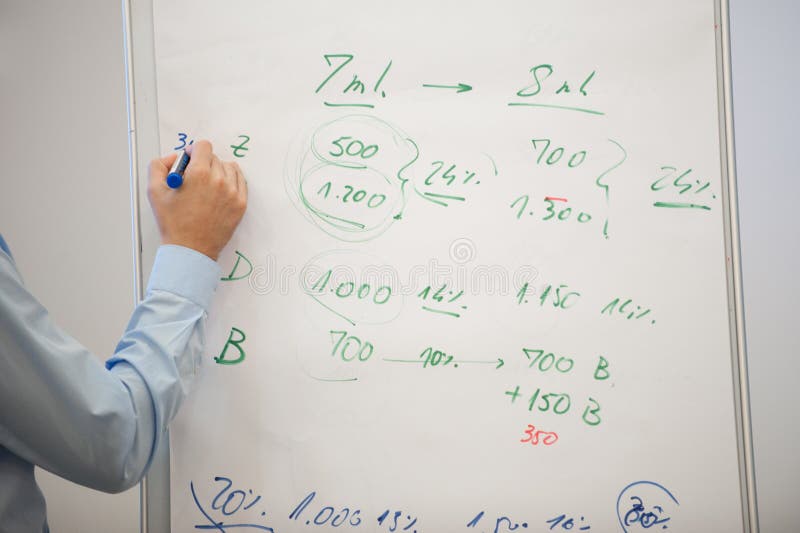 7ml. → 8ml
3. Z 500 700
1.200 24%. 1.300 24%.
D 1.000 14%. 1.150 14%.
B 700 10% → 700 B
+150 B
350
20%. 1.000 13%. 10%
dreamstime